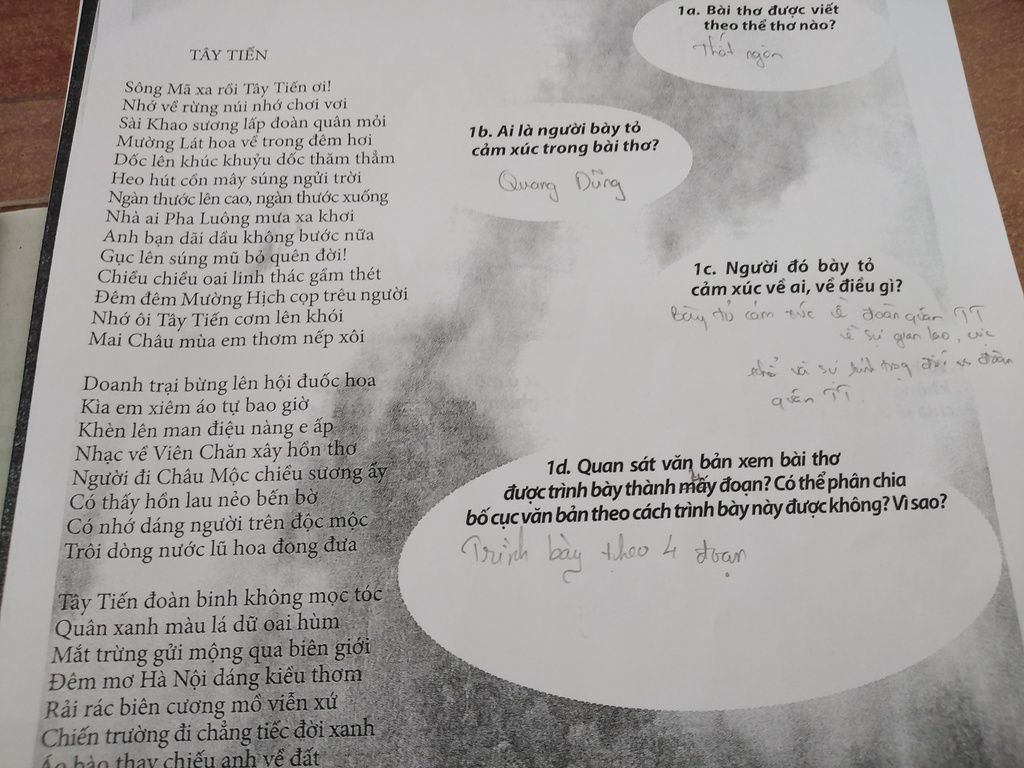 TÂY TIẾN
Sông Mã xa rồi Tây Tiến ơi!
Nhớ về rừng núi nhớ chơi vơi
Sài Khao sương lấp đoàn quân mỏi
Mường Lát hoa về trong đêm hơi
Dốc lên khúc khuỷu dốc thăm thẳm
Heo hút cồn mây súng ngửi trời
Ngàn thước lên cao, ngàn thước xuống
Nhà ai Pha Luông mưa xa khơi
Anh bạn dãi dầu không bước nữa
Gục lên súng mũ bỏ quên đời!
Chiều chiều oai linh thác gầm thét
Đêm đêm Mường Hịch cọp trêu người
Nhớ ôi Tây Tiến cơm lên khói
Mai Châu mùa em thơm nếp xôi
Doanh trại bừng lên hội đuốc hoa
Kìa em xiêm áo tự bao giờ
Khèn lên man điệu nàng e ấp
Nhạc về Viên Chăn xây hồn thơ
Người đi Châu Mộc chiều sương ấy
Có thấy hồn lau nẻo bến bờ
Có nhớ dáng người trên độc mộc
Trôi dòng nước lũ hoa đong đưa
Tây Tiến đoàn binh không mọc tóc
Quân xanh màu lá dữ oai hùm
Mắt trừng gửi mộng qua biên giới
Đêm mơ Hà Nội dáng kiều thơm
Rải rác biên cương mồ viễn xứ
Chiến trường đi chẳng tiếc đời xanh
Áo bào thay chiếu anh về đất
1a. Bài thơ được viết
theo thể thơ nào?
Thất ngôn
1b. Ai là người bày tỏ
cảm xúc trong bài thơ?
Quang Dũng
1c. Người đó bày tỏ
cảm xúc về ai, về điều gì?
Bày tỏ cảm xúc về đoàn quân TT
về sự gian lao, cực
khổ và sự kính trọng đối vs đoàn
quân TT.
1d. Quan sát văn bản xem bài thơ
được trình bày thành mấy đoạn? Có thể phân chia
bố cục văn bản theo cách trình bày này được không? Vì sao?
Trình bày theo 4 đoạn